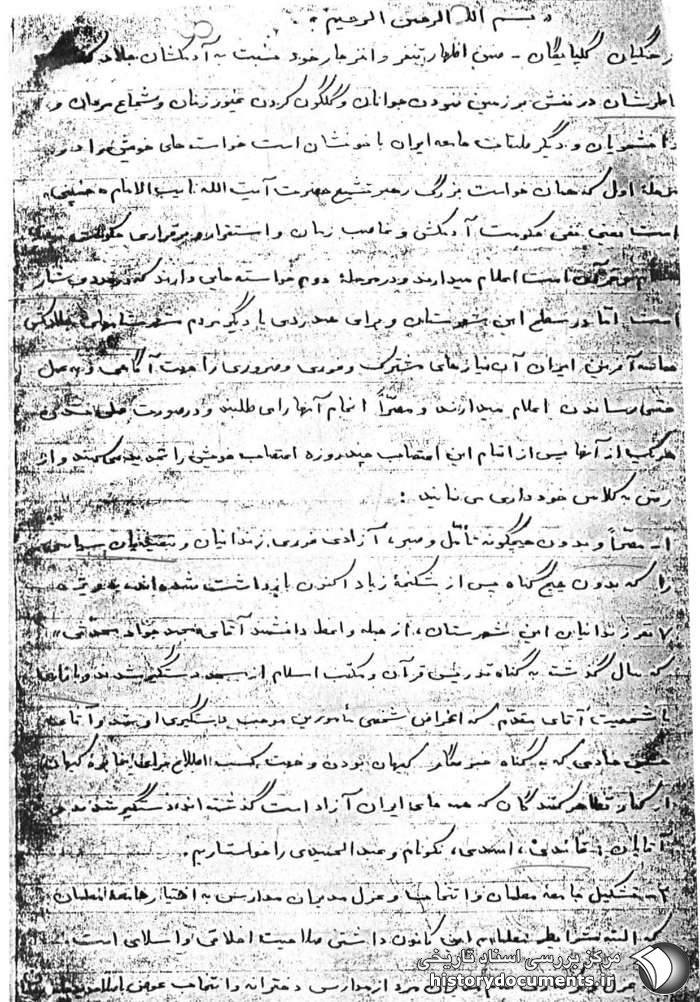 « بسم الله الرحمن الرحیم »
فرهنگیان گلپایگان - ضمن اظهار تنفر و انزجار خود نسبت به آدمکشان جلاد که
در نقش بر زمین نمودن جوانان و گلگون کردن غیور زنان و شجاع مردان و
دانشجویان و دیگر طبقات جامعه ایران با خونشان است خواست های خویش را در دو
مرحله اول که همان خواست بزرگ رهبر تشیع حضرت آیت الله نایب الامام « خمینی »
است یعنی نفی حکومت آدمکش و غاصب زمان و استقرار و برقراری حکومت
است اعلام میدارند و در مرحله دوم خواسته هایی دارند که
است. اما در سطح این شهرستان و برای همدردی با دیگر مردم شهرستانهای
ایران آن نیازهای مشترک و فوری و ضروری را جهت آگاهی و به عمل
رساندن اعلام میدارند و مصراً انجام آنها را می طلبند و در صورت عملی نشدن
هر یک از آنها پس از اتمام این اعتصاب چند روزه اعتصاب خویش را تمدید می کنند و از
رفتن به کلاس خودداری می نمایند :
۱- مصراً و بدون هیچگونه تأمل و صبر، آزادی فوری زندانیان و تبعیدیان سیاسی
را که بدون هیچ گناه پس از شکنجه زیاد اکنون بازداشت شده اند،
۷ نفر زندانیان این شهرستان، از جمله واعظ دانشمند آقای « محمد جواد »
که سال گذشته به گناه تدریس قرآن و مکتب اسلام از مسجد دستگیر شدند و
با شخصیت آقای مقدم که اغراض شخصی مأمورین موجب دستگیری او شد و آقای
حسین هادی که به گناه خبرنگار کیهان بودن و جهت کسب اطلاع برای روزنامه کیهان
تظاهر کنندگان که همه جای ایران آزاد است گذشته اند دستگیر شدند و
آقایان : قائدی، اسعدی، نکونام و عبدالحمیدی را خواستاریم.
۲- تشکیل جامعه معلمان و انتخاب و عزل مدیران مدارس به اختیار جامعه معلمان
که البته شرایط معلم این کانون داشتن صلاحیت اخلاقی و اسلامی است.
مرد از مدارس دخترانه و انتخاب
مرکز بررسی اسناد تاریخی
historydocuments.ir